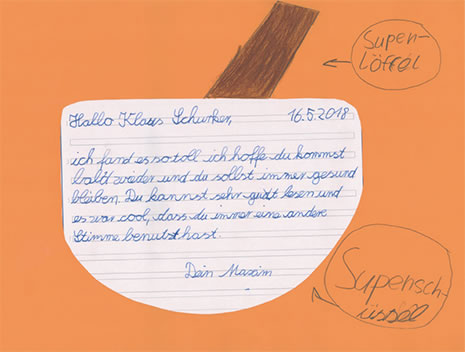 Supen-
löffel
Hallo Klaus Schurker,
16.5.2018
ich fand es so toll ich hoffe du kommst
bald wieder und du sollst immer gesund
bleiben. Du kannst sehr gut lesen und
es war cool, dass du immer eine andere
Stimme benutst hast.
Dein Maxim
Supensch-
üssel